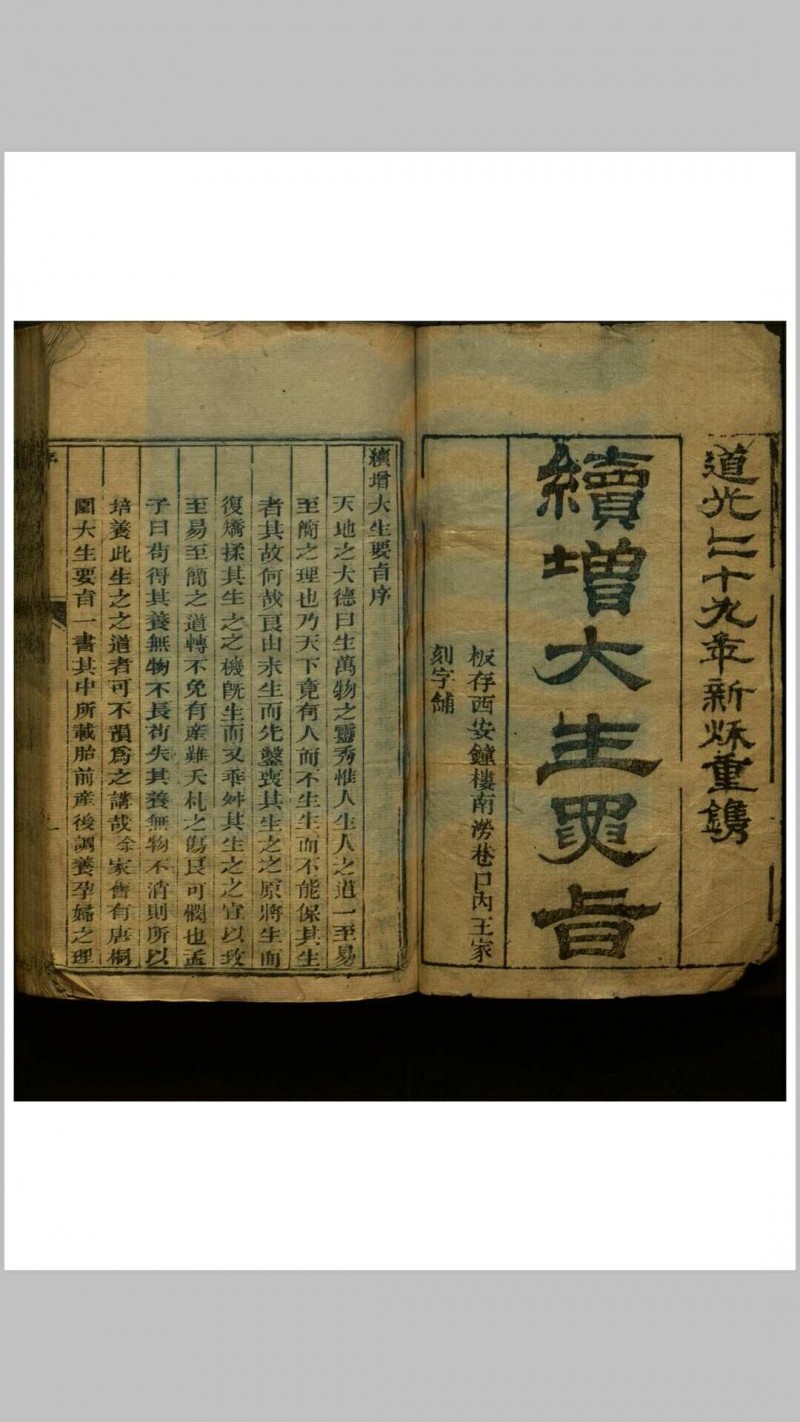 道光二十九年新秌重鐫
續增大生要旨
板存西安鐘樓南澇巷口內王家
刻字舖
續增大生要㫖序
天地之大德曰生萬物之靈秀惟人生人之道一至易
至簡之理也乃天下竟有人而不生生而不能保其生
者其故何哉良由未生而先鑿喪其生之之原將生而
復矯揉其生之之機旣生而又乖舛其生之之宜以致
至易至簡之道轉不免有産難夭札之傷良可憫也孟
子曰苟得其養無物不長苟失其養無物不消則所以
培養此生之之道者可不預爲之講哉余家舊有唐桐
園大生要㫖一書其中所載胎前産後調養孕婦之理
序
一